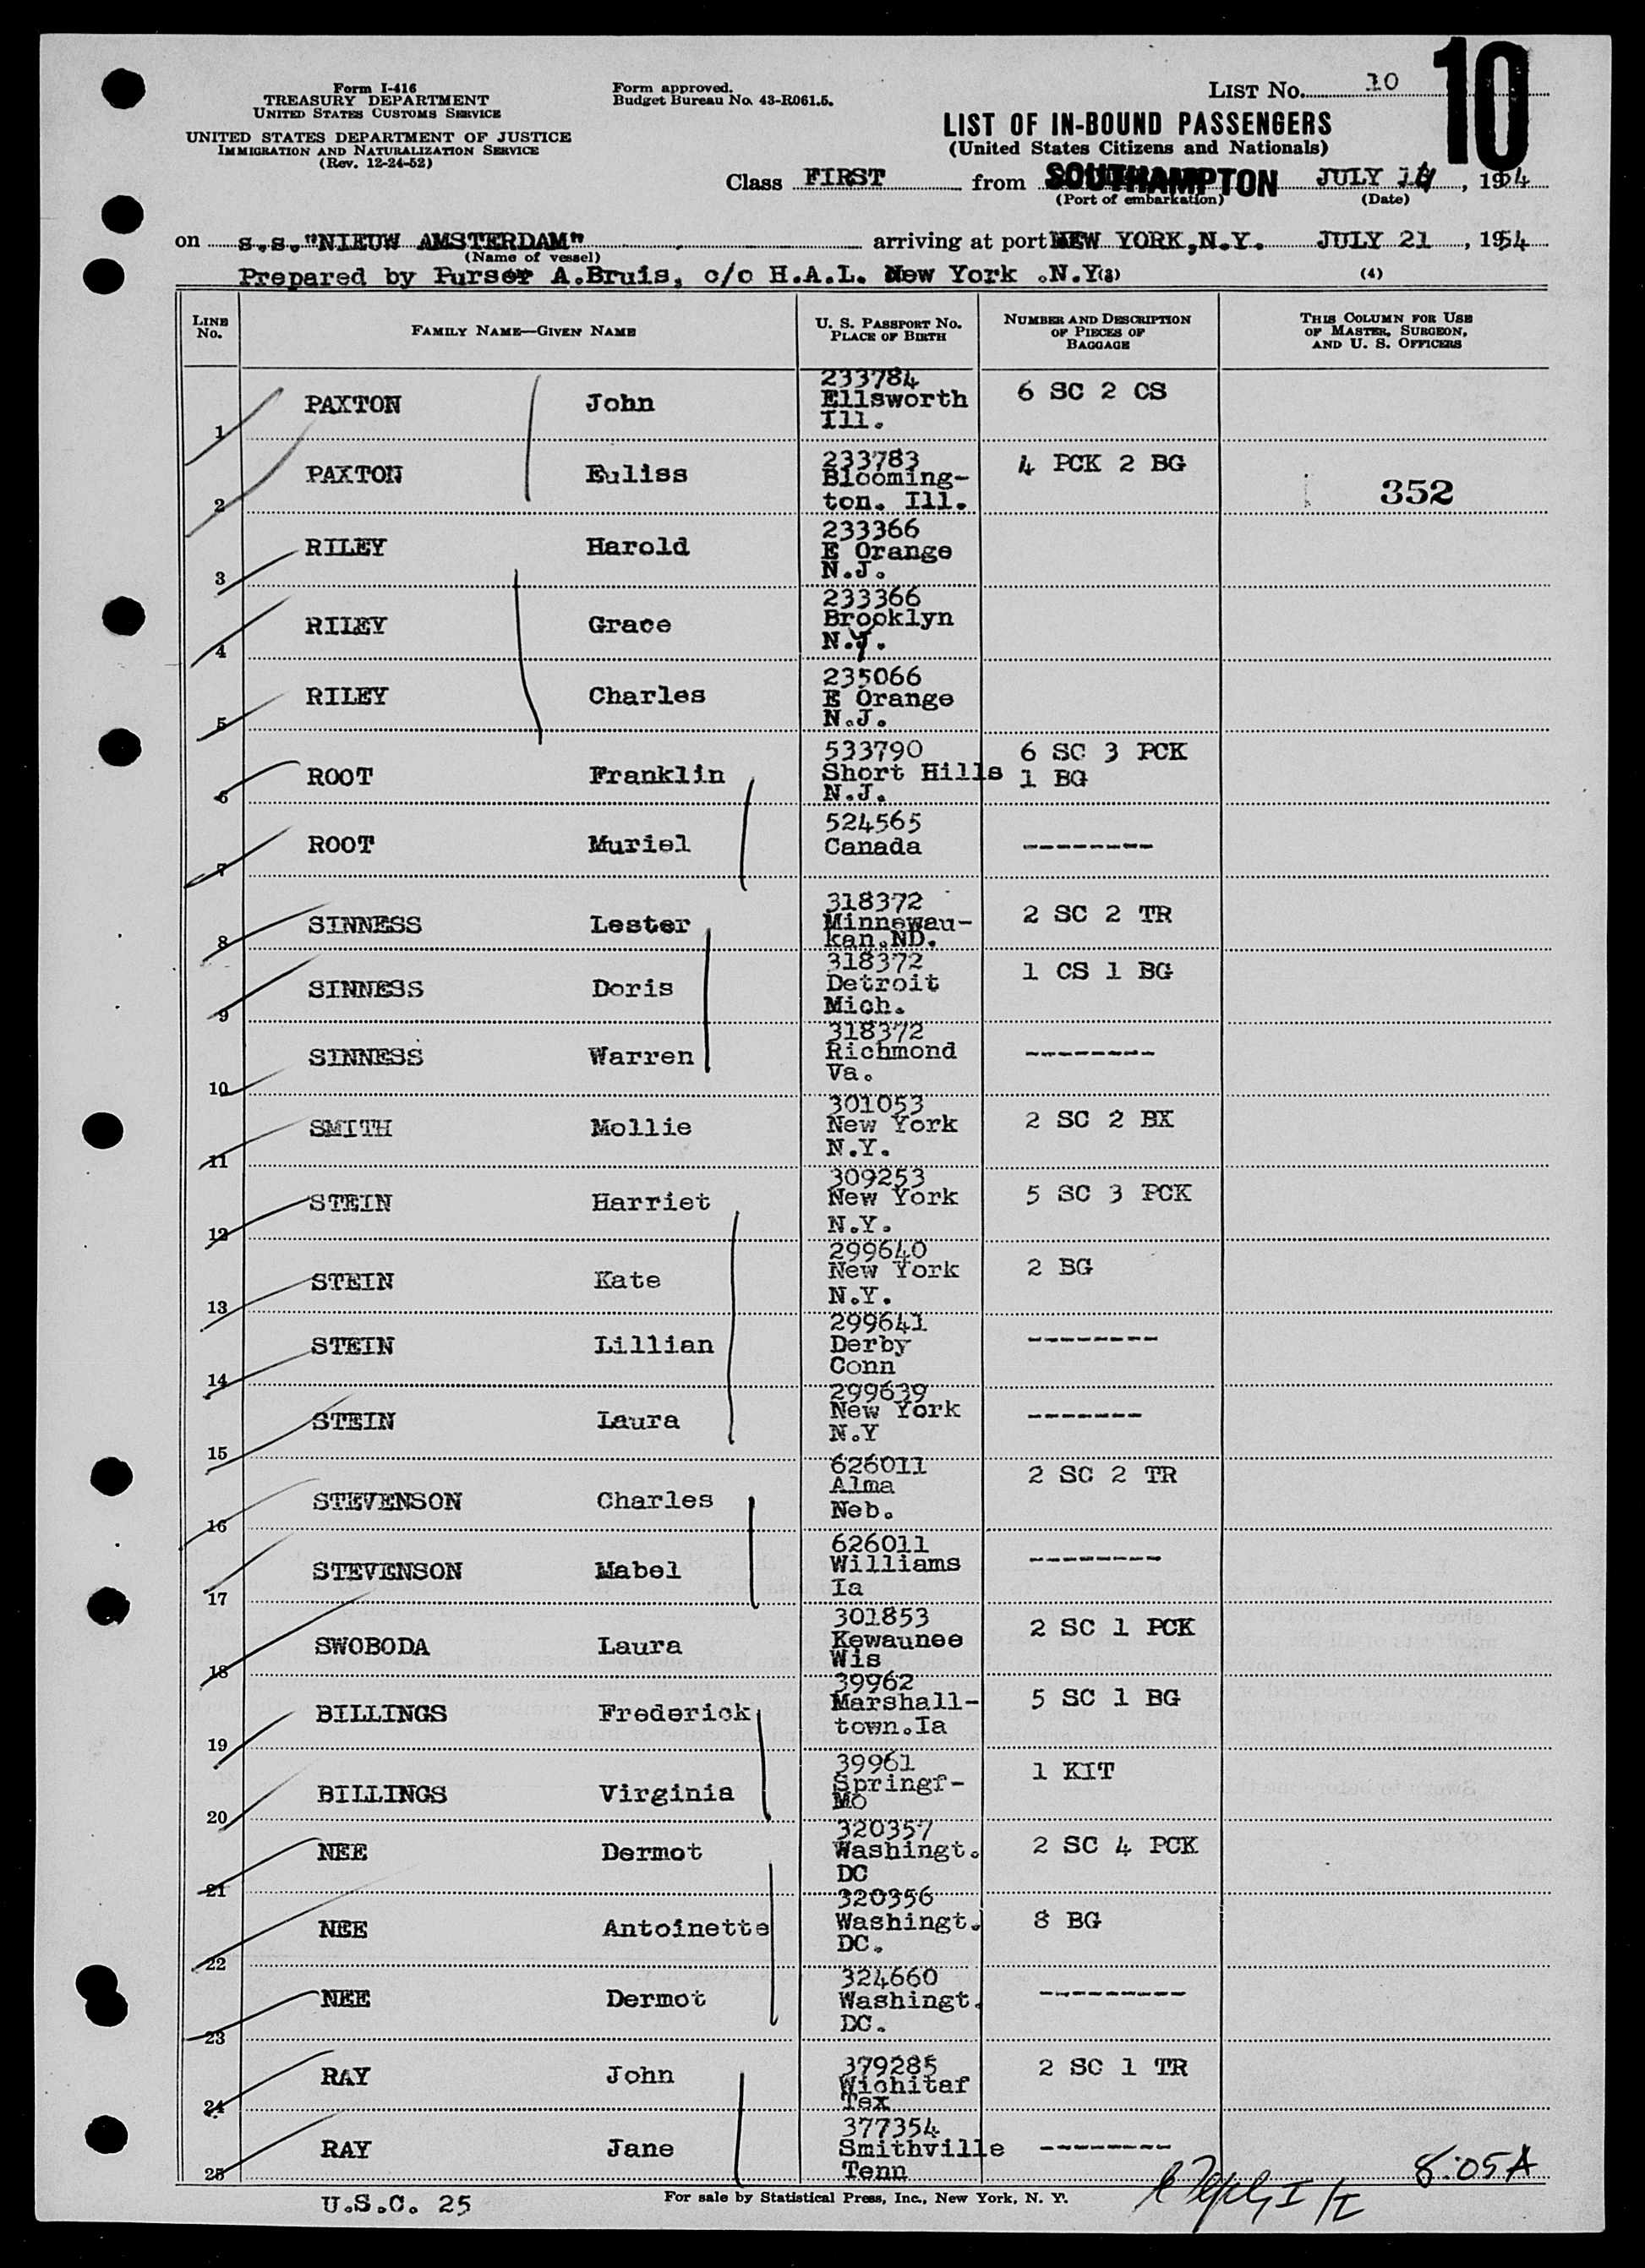 Form I-416
TREASURY DEPARTMENT
UNITED STATES CUSTOMS SERVICE
UNITED STATES DEPARTMENT OF JUSTICE
IMMIGRATION AND NATURALIZATION SERVICE
(Rev. 12-24-52)
Form approved.
Budget Bureau No. 43-R061.5.
LIST NO. 10
10
LIST OF IN-BOUND PASSENGERS
(United States Citizens and Nationals)
Class FIRST from SOUTHAMPTON JULY , 1954
(Port of embarkation) (Date)
on s.s."NIEUW AMSTERDAM" arriving at port NEW YORK,N.Y. JULY 21 , 1954
(Name of vessel)
Prepared by Purser A.Bruis, c/o H.A.L. New York .N.Y(3) (4)
LINE No. FAMILY NAME—GIVEN NAME U. S. PASSPORT NO. PLACE OF BIRTH NUMBER AND DESCRIPTION OF PIECES OF BAGGAGE THIS COLUMN FOR USE OF MASTER, SURGEON, AND U. S. OFFICERS
1 PAXTON John 233784 Ellsworth Ill. 6 SC 2 CS
2 PAXTON Euliss 233783 Blooming-ton. Ill. 4 PCK 2 BG 352
3 RILEY Harold 233366 E Orange N.J.
4 RILEY Grace 233366 Brooklyn N.Y.
5 RILEY Charles 235066 E Orange N.J.
6 ROOT Franklin 533790 Short Hills N.J. 6 SC 3 PCK 1 BG
7 ROOT Muriel 524565 Canada --------
8 SINNESS Lester 318372 Minnewau-kan.ND. 2 SC 2 TR
9 SINNESS Doris 318372 Detroit Mich. 1 CS 1 BG
10 SINNESS Warren 318372 Richmond Va. --------
11 SMITH Mollie 301053 New York N.Y. 2 SC 2 BX
12 STEIN Harriet 309253 New York N.Y. 5 SC 3 PCK
13 STEIN Kate 299640 New York N.Y. 2 BG
14 STEIN Lillian 299641 Derby Conn --------
15 STEIN Laura 299639 New York N.Y -------
16 STEVENSON Charles 626011 Alma Neb. 2 SC 2 TR
17 STEVENSON Mabel 626011 Williams Ia --------
18 SWOBODA Laura 301853 Kewaunee Wis 2 SC 1 PCK
19 BILLINGS Frederick 39962 Marshall-town.Ia 5 SC 1 BG
20 BILLINGS Virginia 39961 Springf-Mo 1 KIT
21 NEE Dermot 320357 Washingt. DC 2 SC 4 PCK
22 NEE Antoinette 320356 Washingt. DC. 8 BG
23 NEE Dermot 324660 Washingt. DC. ---------
24 RAY John 379285 Wichitaf Tex 2 SC 1 TR
25 RAY Jane 377354 Smithville Tenn --------
8:05A
U.S.C. 25
For sale by Statistical Press, Inc., New York, N. Y.